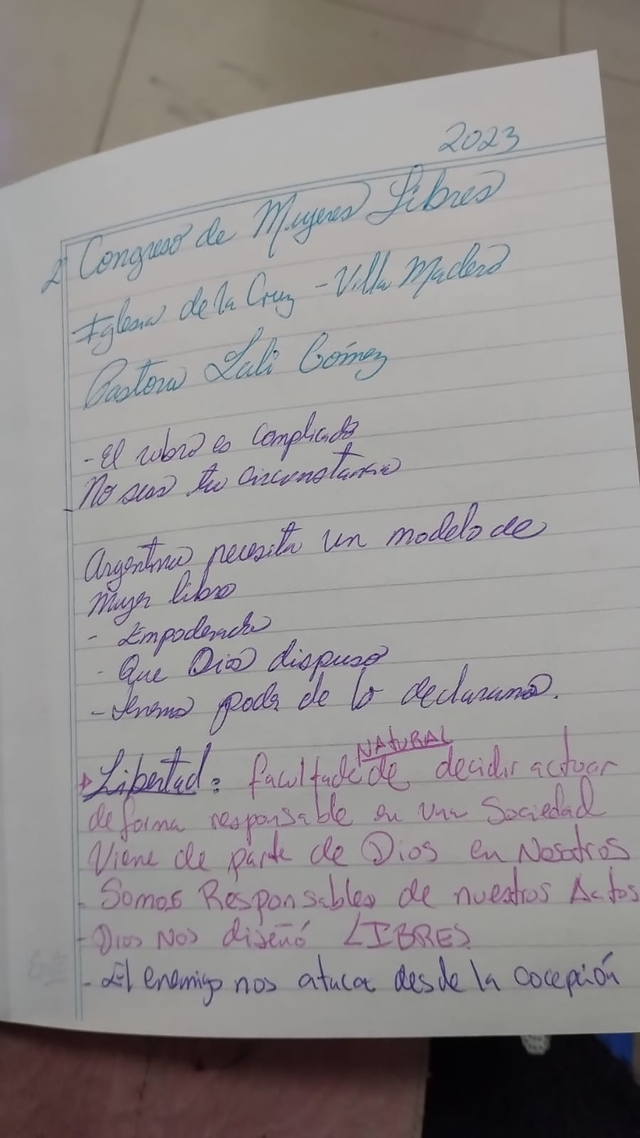 2023
2 Congreso de Mujeres Libres
Iglesia de la Cruz - Villa Madero
Pastora Lali Gómez
- El rubro es complicado
No seas tu circunstancia
Argentina necesita un modelo de
Mujer libre
- Empoderada
- Que Dios dispuso
- Tenemos poder de lo declaramos.
NATURAL
Libertad: facultad de decidir actuar
de forma responsable en una Sociedad
Viene de parte de Dios en Nosotros
- Somos Responsables de nuestros Actos
- Dios Nos diseñó LIBRES
- El enemigo nos ataca desde la cocepción